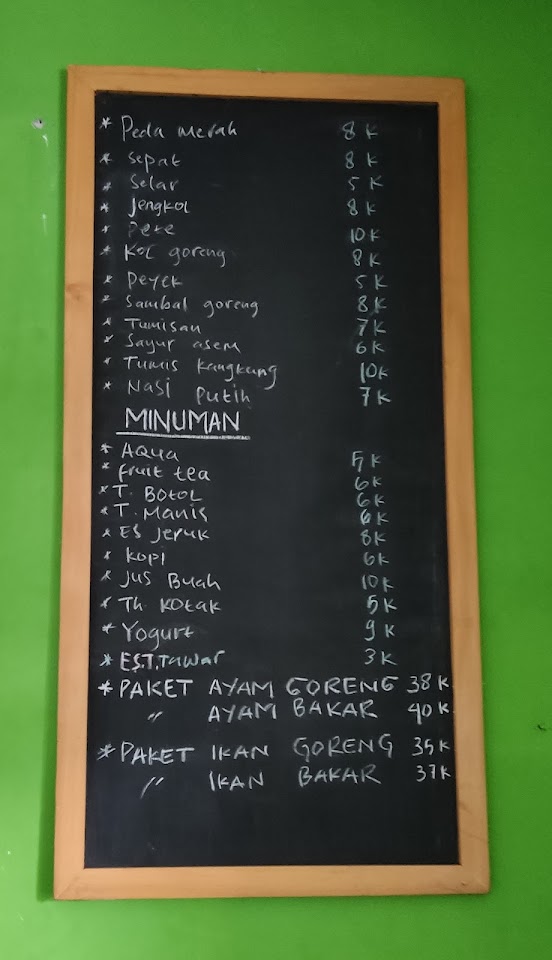 * Peda merah 8 K
* Sepat 8 K
* Selar 5 K
* Jengkol 8 K
* Pete 10 K
* Kol goreng 8 K
* Peyek 5 K
* Sambal goreng 8 K
* Tumisan 7 K
* Sayur asem 6 K
* Tumis kangkung 10 K
* Nasi Putih 7 K
MINUMAN
* AQUA 5 K
* fruit tea 6 K
* T. BOTOL 6 K
* T. MANIS 6 K
* ES Jeruk 8 K
* kopi 6 K
* Jus Buah 10 K
* Th. KOTAK 5 K
* Yogurt 9 K
* ES.T.Tawar 3 K
* PAKET AYAM GORENG 38 K
" AYAM BAKAR 40 K
* PAKET IKAN GORENG 35 K
" IKAN BAKAR 37 K